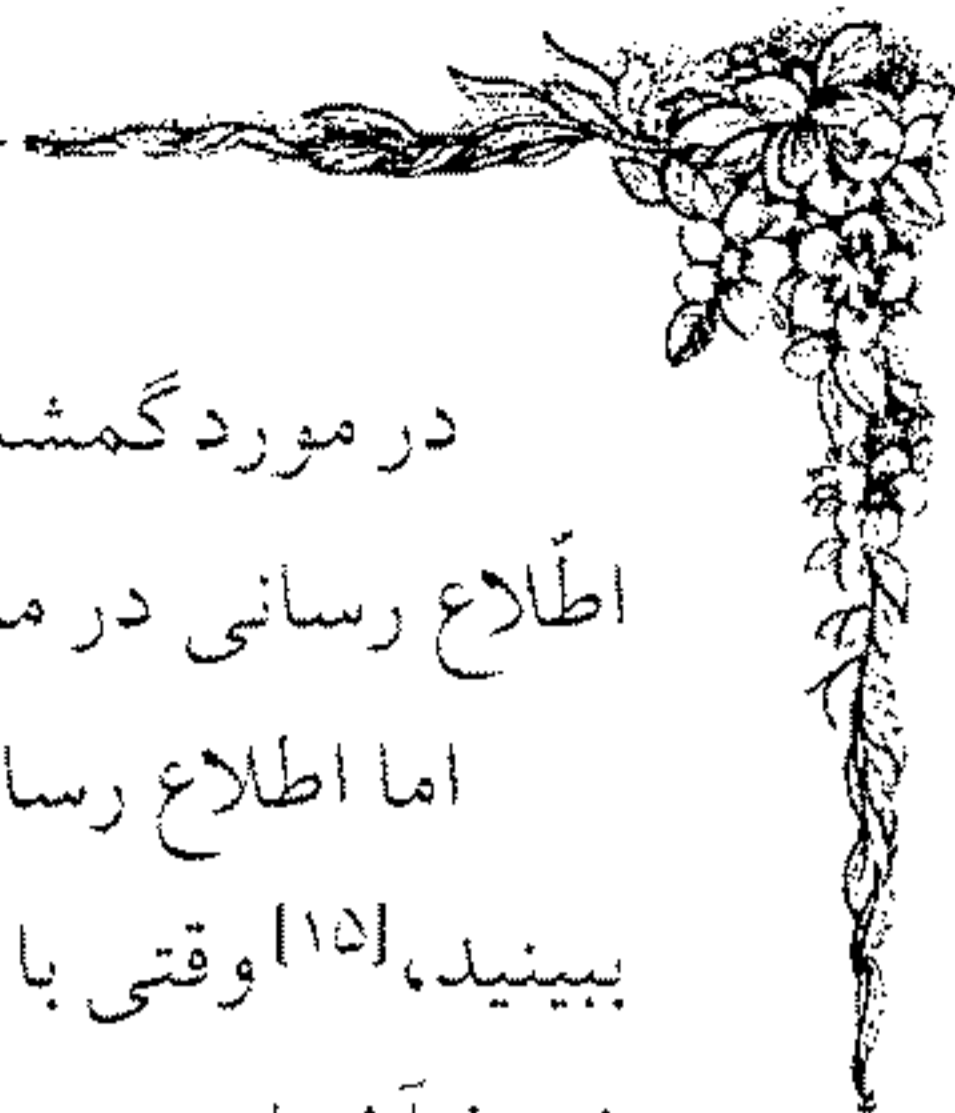 در مورد
اطّلاع رسانی در
اما اطلاع
ببینید،[۱۵] وقتی با